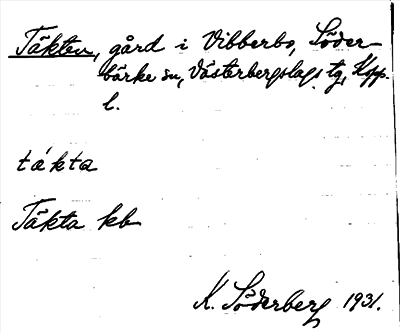 Täkten, gård i Vibberbo, Söder-
bärke sn, Västerbergslags tg, Kopp.
l.
tákta
Täkta kb
K. Söderberg 1931.